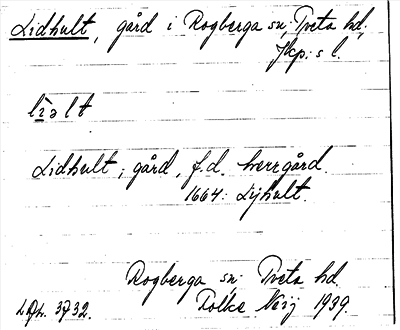 Lidhult, gård i Rogberga sn, Tveta hd,
Jkp:s l.
lìəlt
Lidhult, gård, f.d. herrgård.
1664: Lijhult.
Rogberga sn. Tveta hd.
3732. Folke 1939.